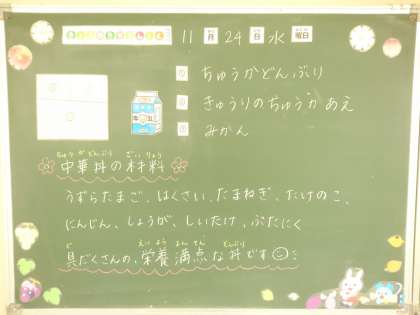 きょうのきゅうしょく
11月24日水曜日
ちゅうかどんぶり
きゅうりのちゅうかあえ
みかん
ちゅうかどんぶり ざいりょう
中華丼の材料
うずらたまご、はくさい、たまねぎ、たけのこ、
にんじん、しょうが、しいたけ、ぶたにく
ぐ えいよう まんてん どんぶり
具だくさんの、栄養満点な丼です